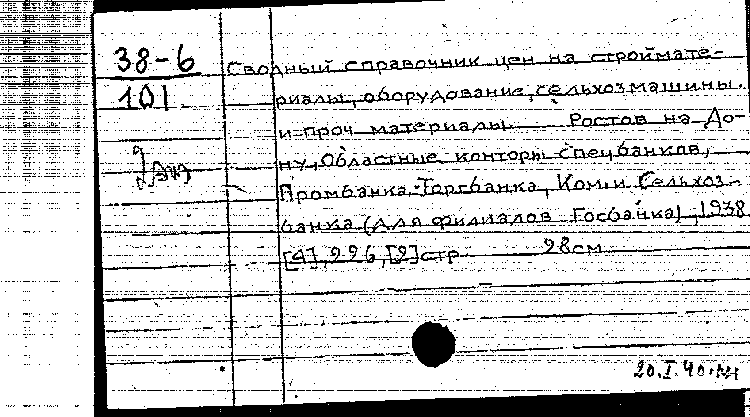 38-6
101
Сводный справочник цен на строймате-
риалы, оборудование, сельхозмашины.
и проч материалы. Ростов на До-
ну, Областные конторы спецбанков,
Промбанка, Торгбанка, Ком. и Сельхоз-
банка (для филиалов Госбанка), 1938
[4], 226, [2] стр 28 см
20.I.40.